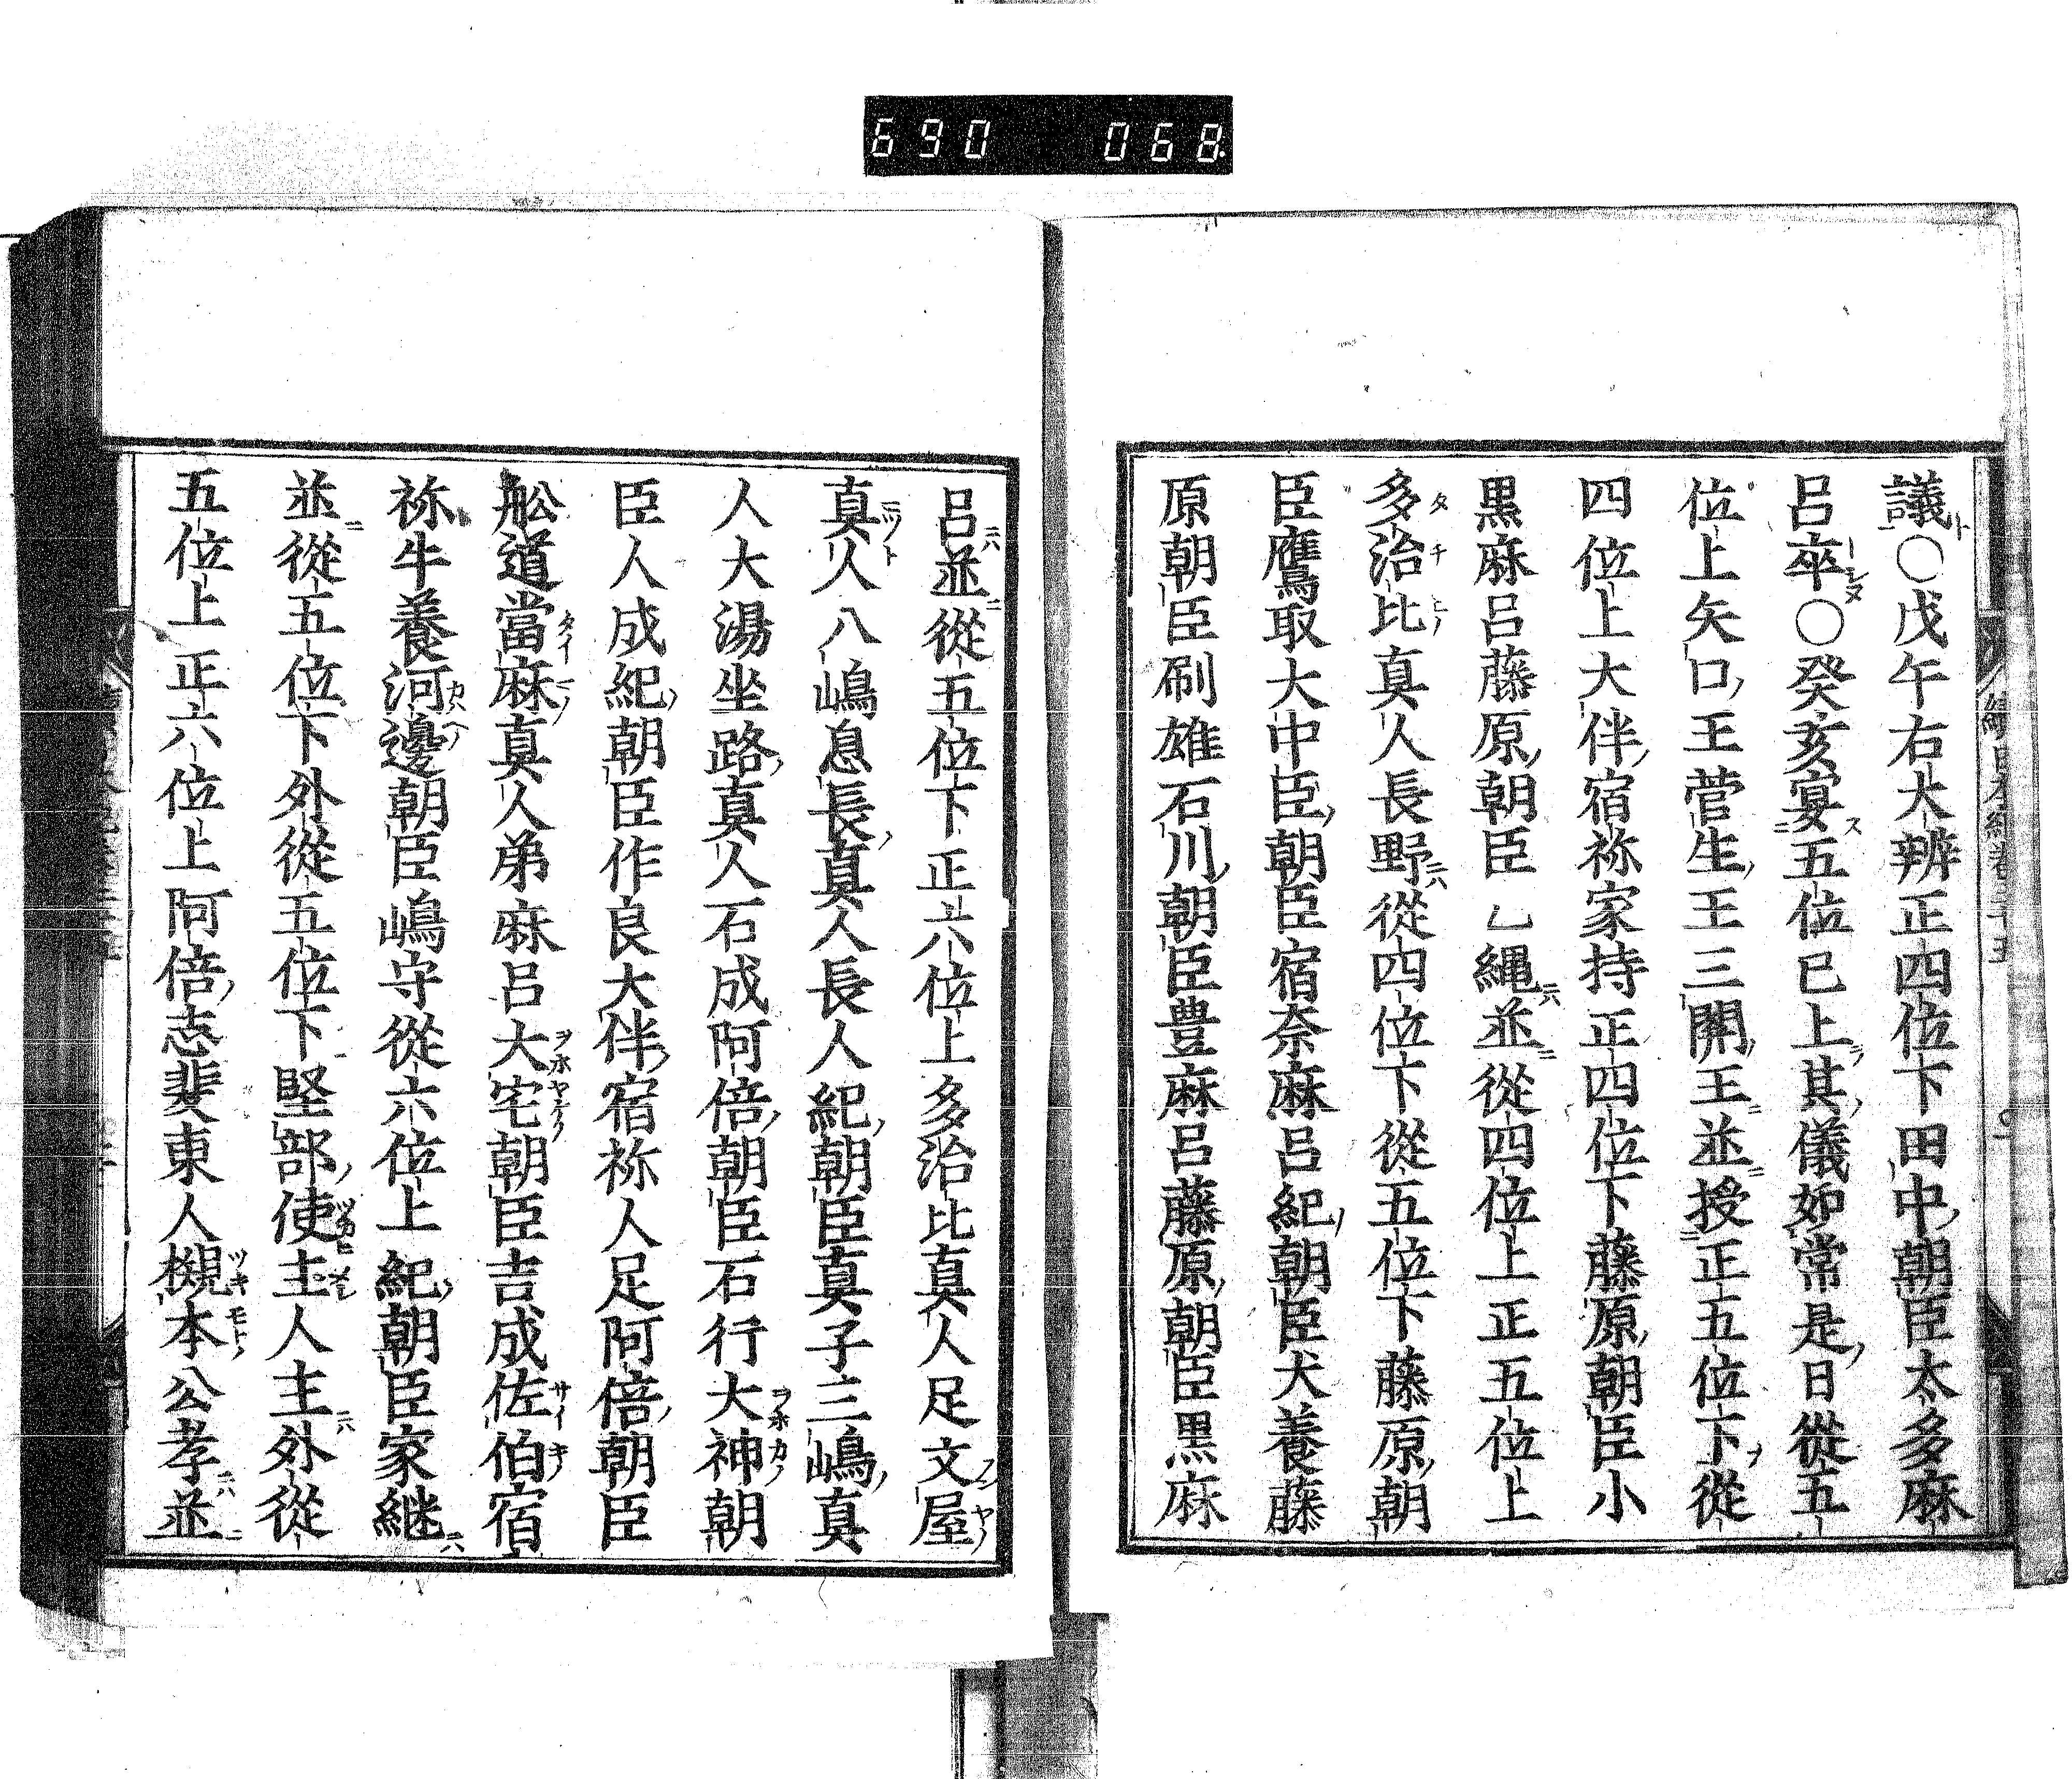 690 068
議○戊午右大辨正四位下田中朝臣太多麻
呂卒○癸亥宴五位已上其儀如常是日從五
位上矢口王菅生王三開王並授正五位下從
四位上大伴宿祢家持正四位下藤原朝臣小
黒麻呂藤原朝臣乙縄並從四位上正五位上
多治比真人長野從四位下從五位下藤原朝
臣鷹取大中臣朝臣宿奈麻呂紀朝臣犬養藤
原朝臣刷雄石川朝臣豊麻呂藤原朝臣黒麻
呂並從五位下正六位上多治比真人足文屋
真人八嶋息長真人長人紀朝臣真子三嶋真
人大湯坐路真人石成阿倍朝臣石行大神朝
臣人成紀朝臣作良大伴宿祢人足阿倍朝臣
舩道當麻真人弟麻呂大宅朝臣吉成佐伯宿
祢牛養河邊朝臣嶋守從六位上紀朝臣家継
並從五位下外從五位下堅部使主人主外從
五位上正六位上阿倍志斐東人槻本公孝並